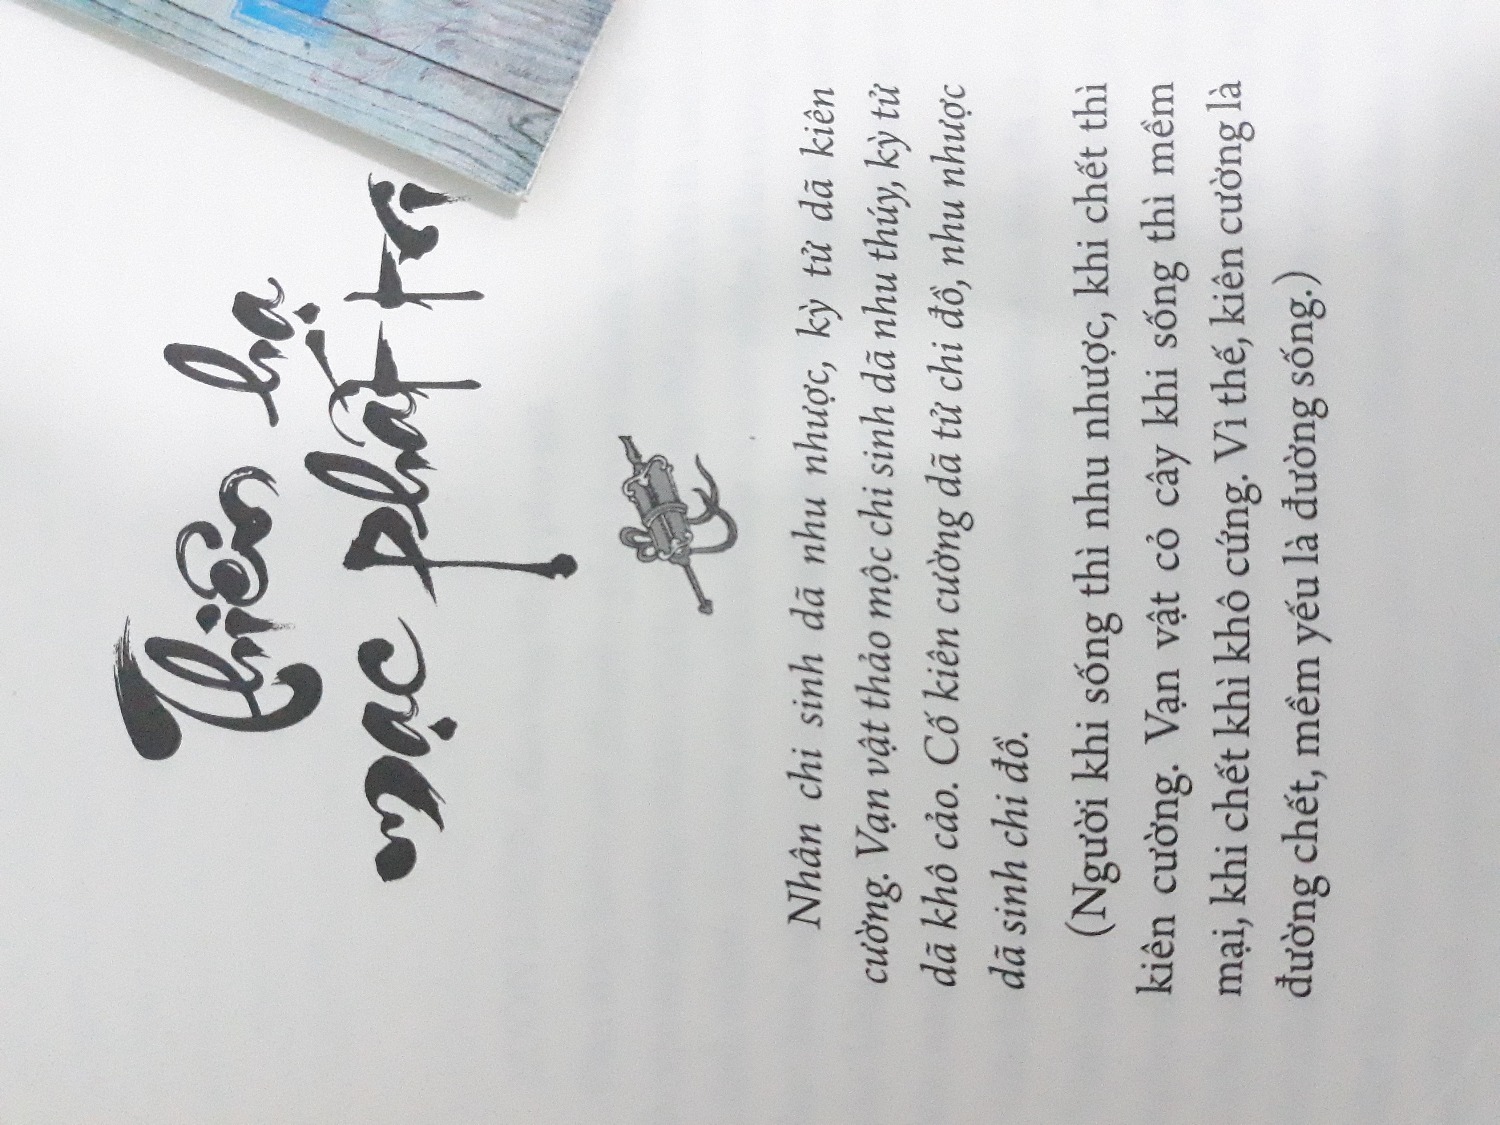 Thiên hạ
mạc phất tri
Nhân chi sinh dã nhu nhược, kỳ tử dã kiên
cường. Vạn vật thảo mộc chi sinh dã nhu thúy, kỳ tử
dã khô cảo. Cố kiên cường dã tử chi đồ, nhu nhược
dã sinh chi đồ.
(Người khi sống thì nhu nhược, khi chết thì
kiên cường. Vạn vật cỏ cây khi sống thì mềm
mại, khi chết khì khô cứng. Vì thế, kiên cường là
đường chết, mềm yếu là đường sống.)